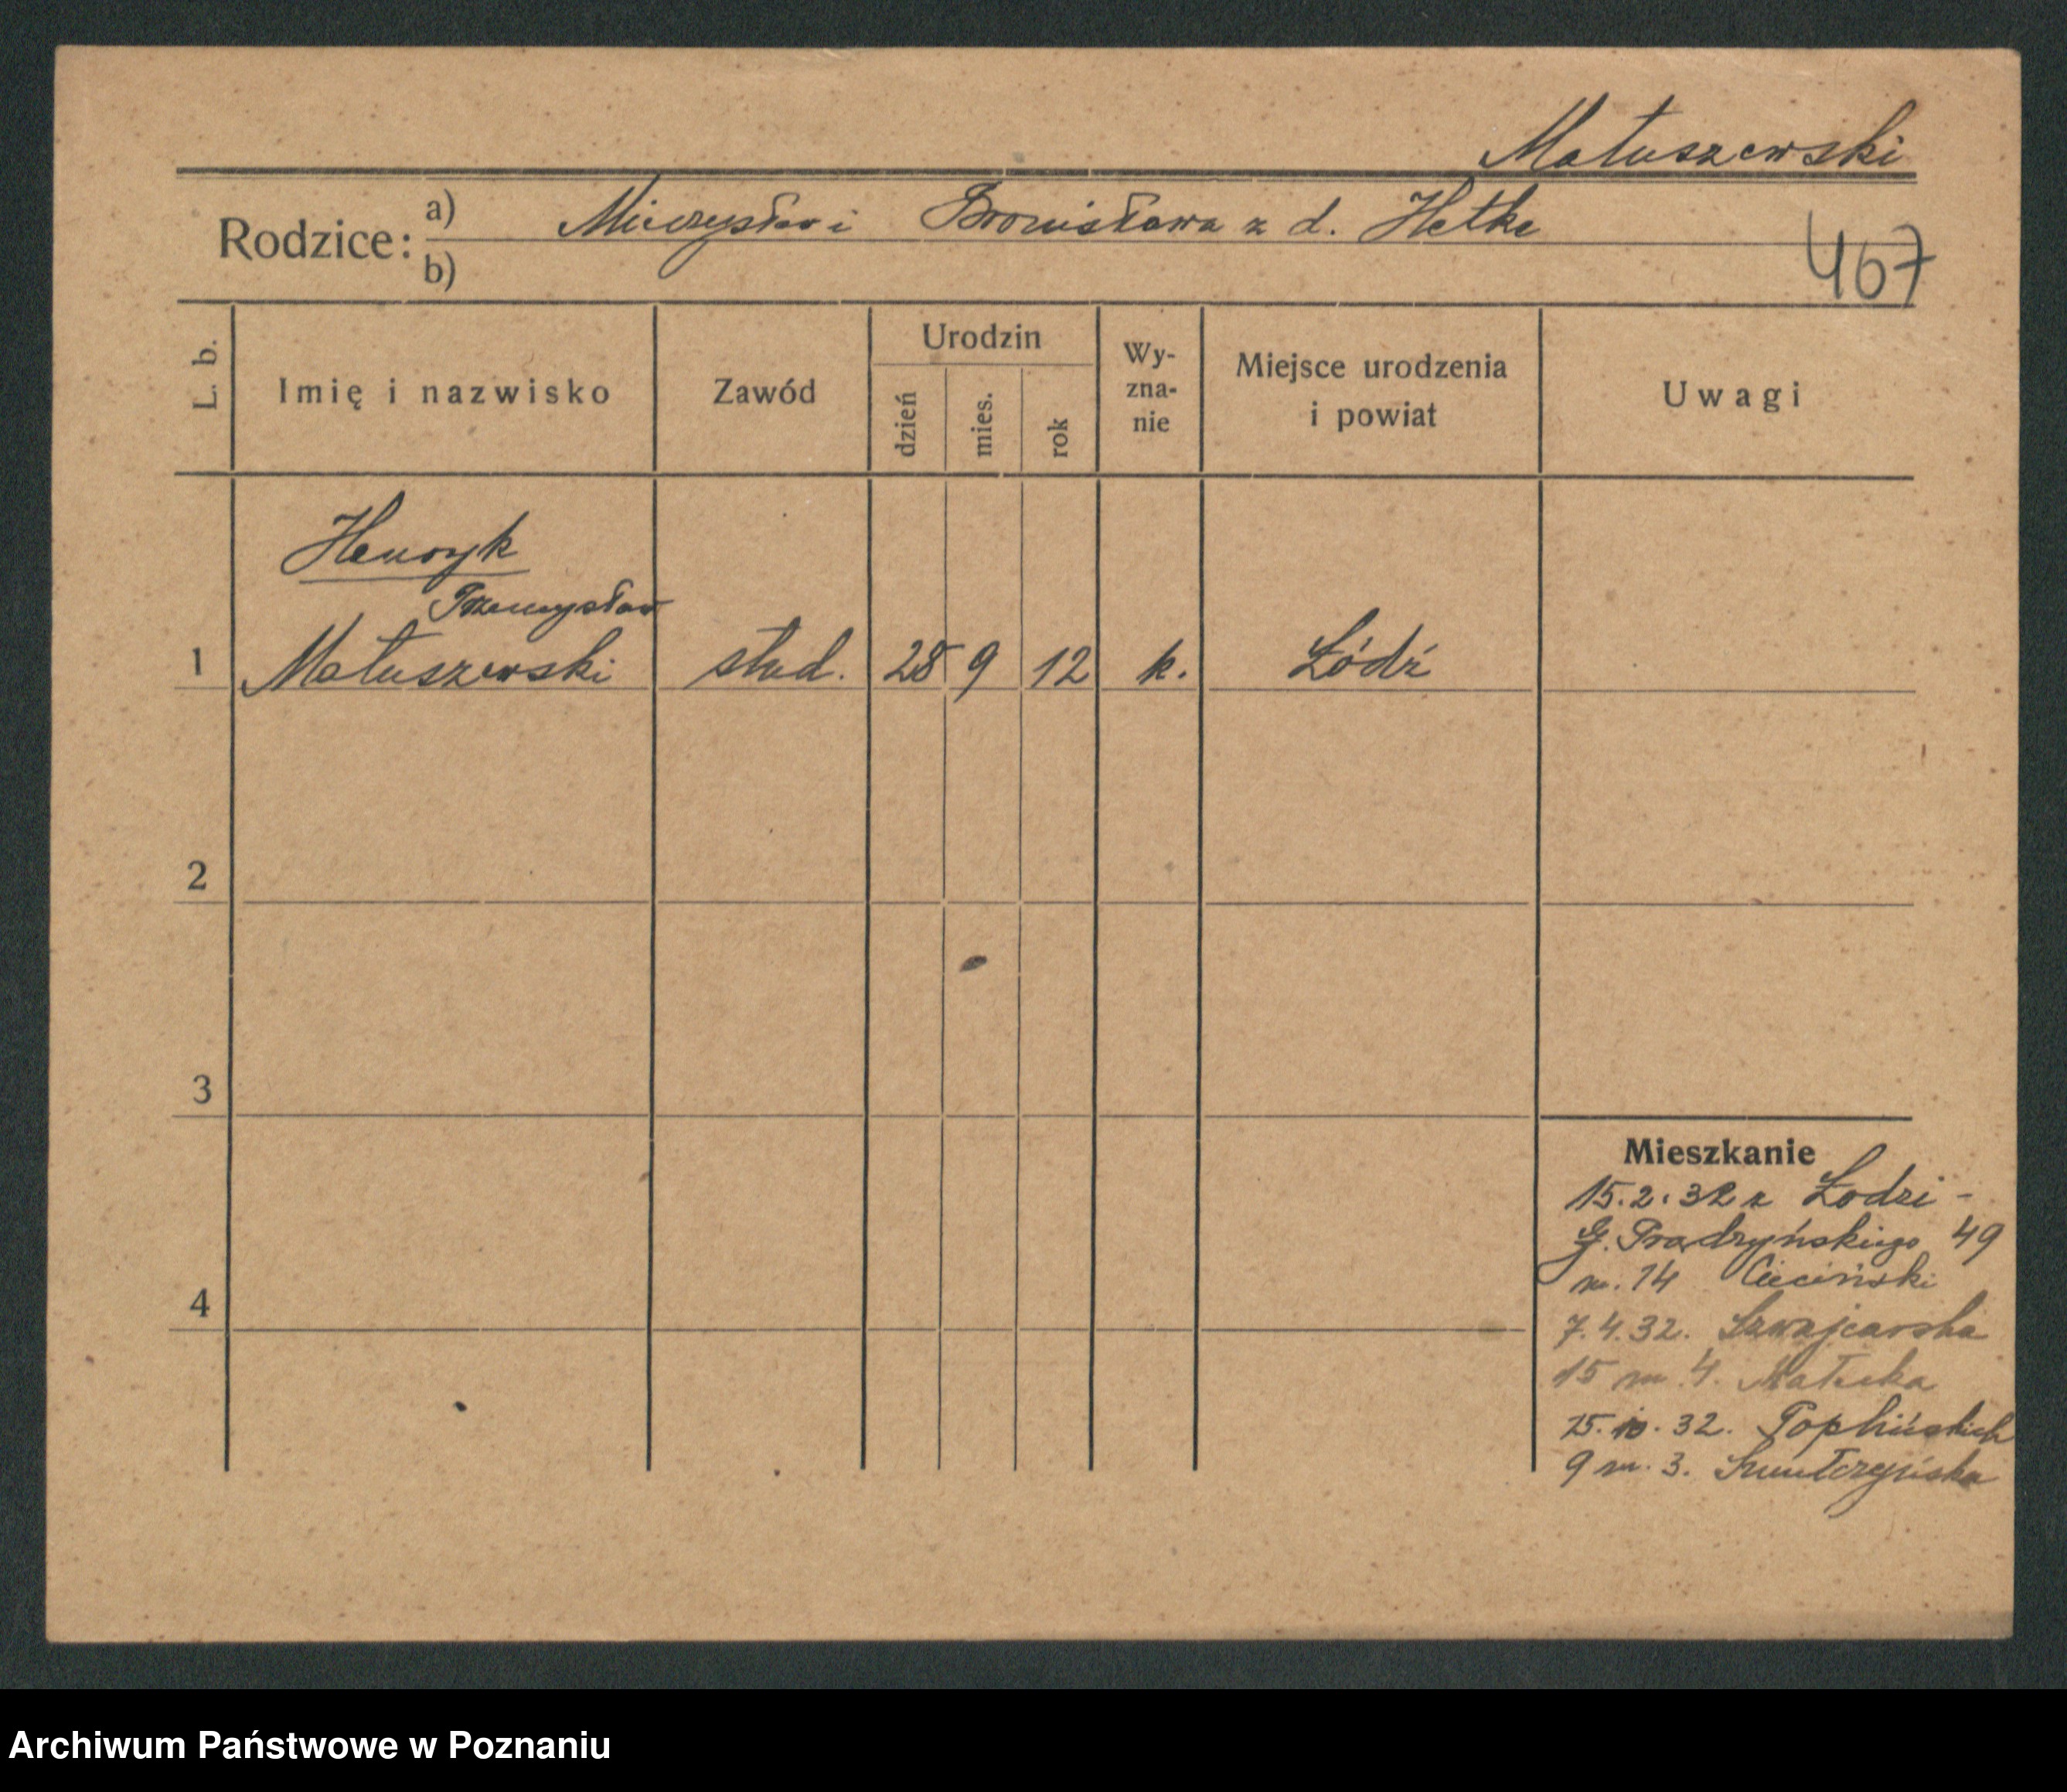 Matuszewski
Rodzice: a) Mieczysław i Bronisława z d. Hetke
b)
467
L. b.
Imię i nazwisko
Zawód
Urodzin
dzień
mies.
rok
Wy-
zna-
nie
Miejsce urodzenia
i powiat
Uwagi
Henryk
Przemysław
1 Matuszewski stud. 28 9 12 k. Łódź
2
3
4
Mieszkanie
15.2.32 z Łodzi -
G. Prądzyńskiego 49
m. 14 Cieciński
7.4.32. Szwajcarska
15 m. 4. Małecka
15. 10. 32.
9 m. 3.
Archiwum Państwowe w Poznaniu